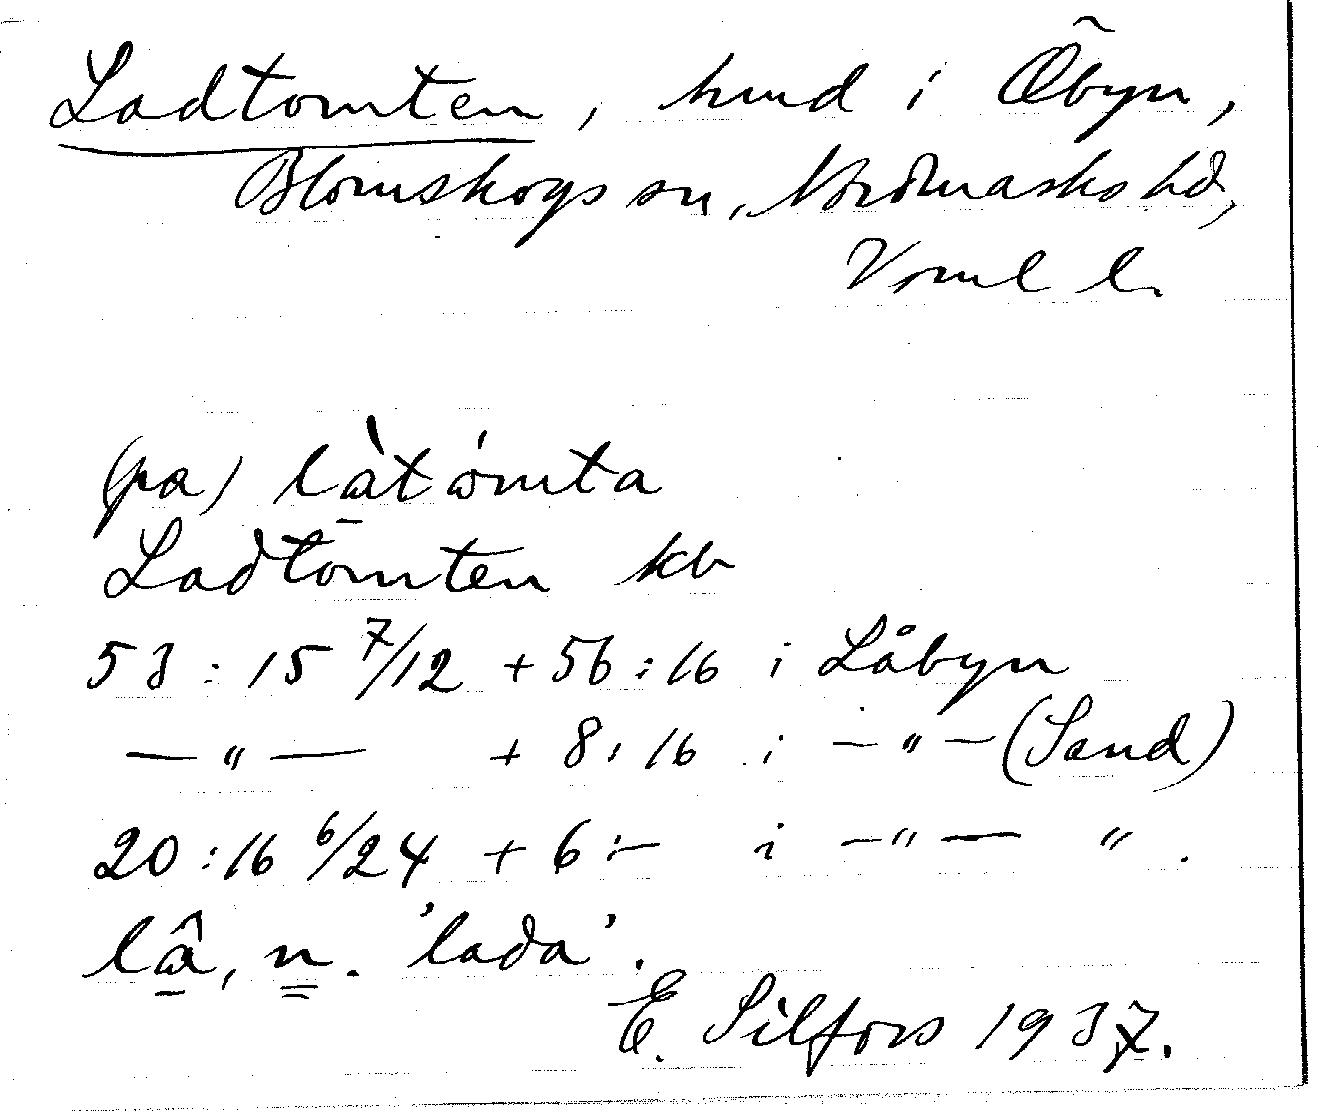 Ladtomten, hmd i Åbyn,
Blomskogs sn, Nordmarks hd,
Vrml l.
(pa) làtómta
Ladtomten kb
53:15 7/12 + 56:16 i Låbyn
—"— + 8:16 i —"— (Sand)
20:16 6/24 + 6:— i —"— " .
lâ, n. 'lada'.
E. Silfors 1937.